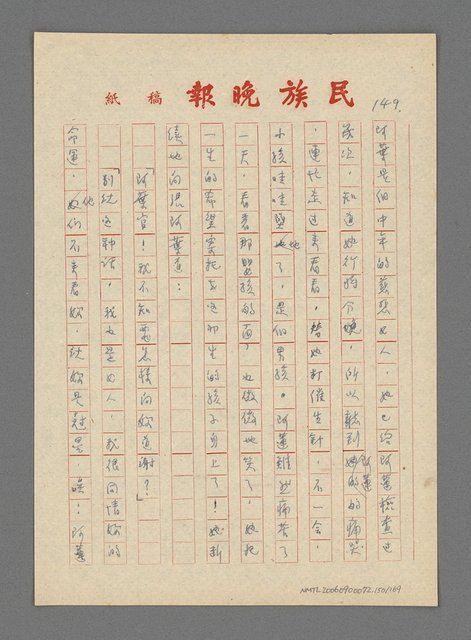 民族晚報 稿紙
149.
阿葉是個中年的慈悲女人，她已給阿蓮檢查過
幾次，知道她行將分娩，所以聽到阿蓮的痛哭
，連忙走過來看看，替她打催生針，不一會，
小孩哇哇墜地了，是個男孩。阿蓮雖然痛苦了
一天，看著那嬰孩的面，也微微地笑了，她把
一生的希望要托在這初生的孩子身上了！她斷
續地向很阿葉道：
「阿葉官！我不知要怎樣向妳道謝？」
「別說這種話，我也是女人，我很同情妳的
命運，他們不來看妳，說妳是尅星，唉！阿蓮
NMTL20060900072.150/169